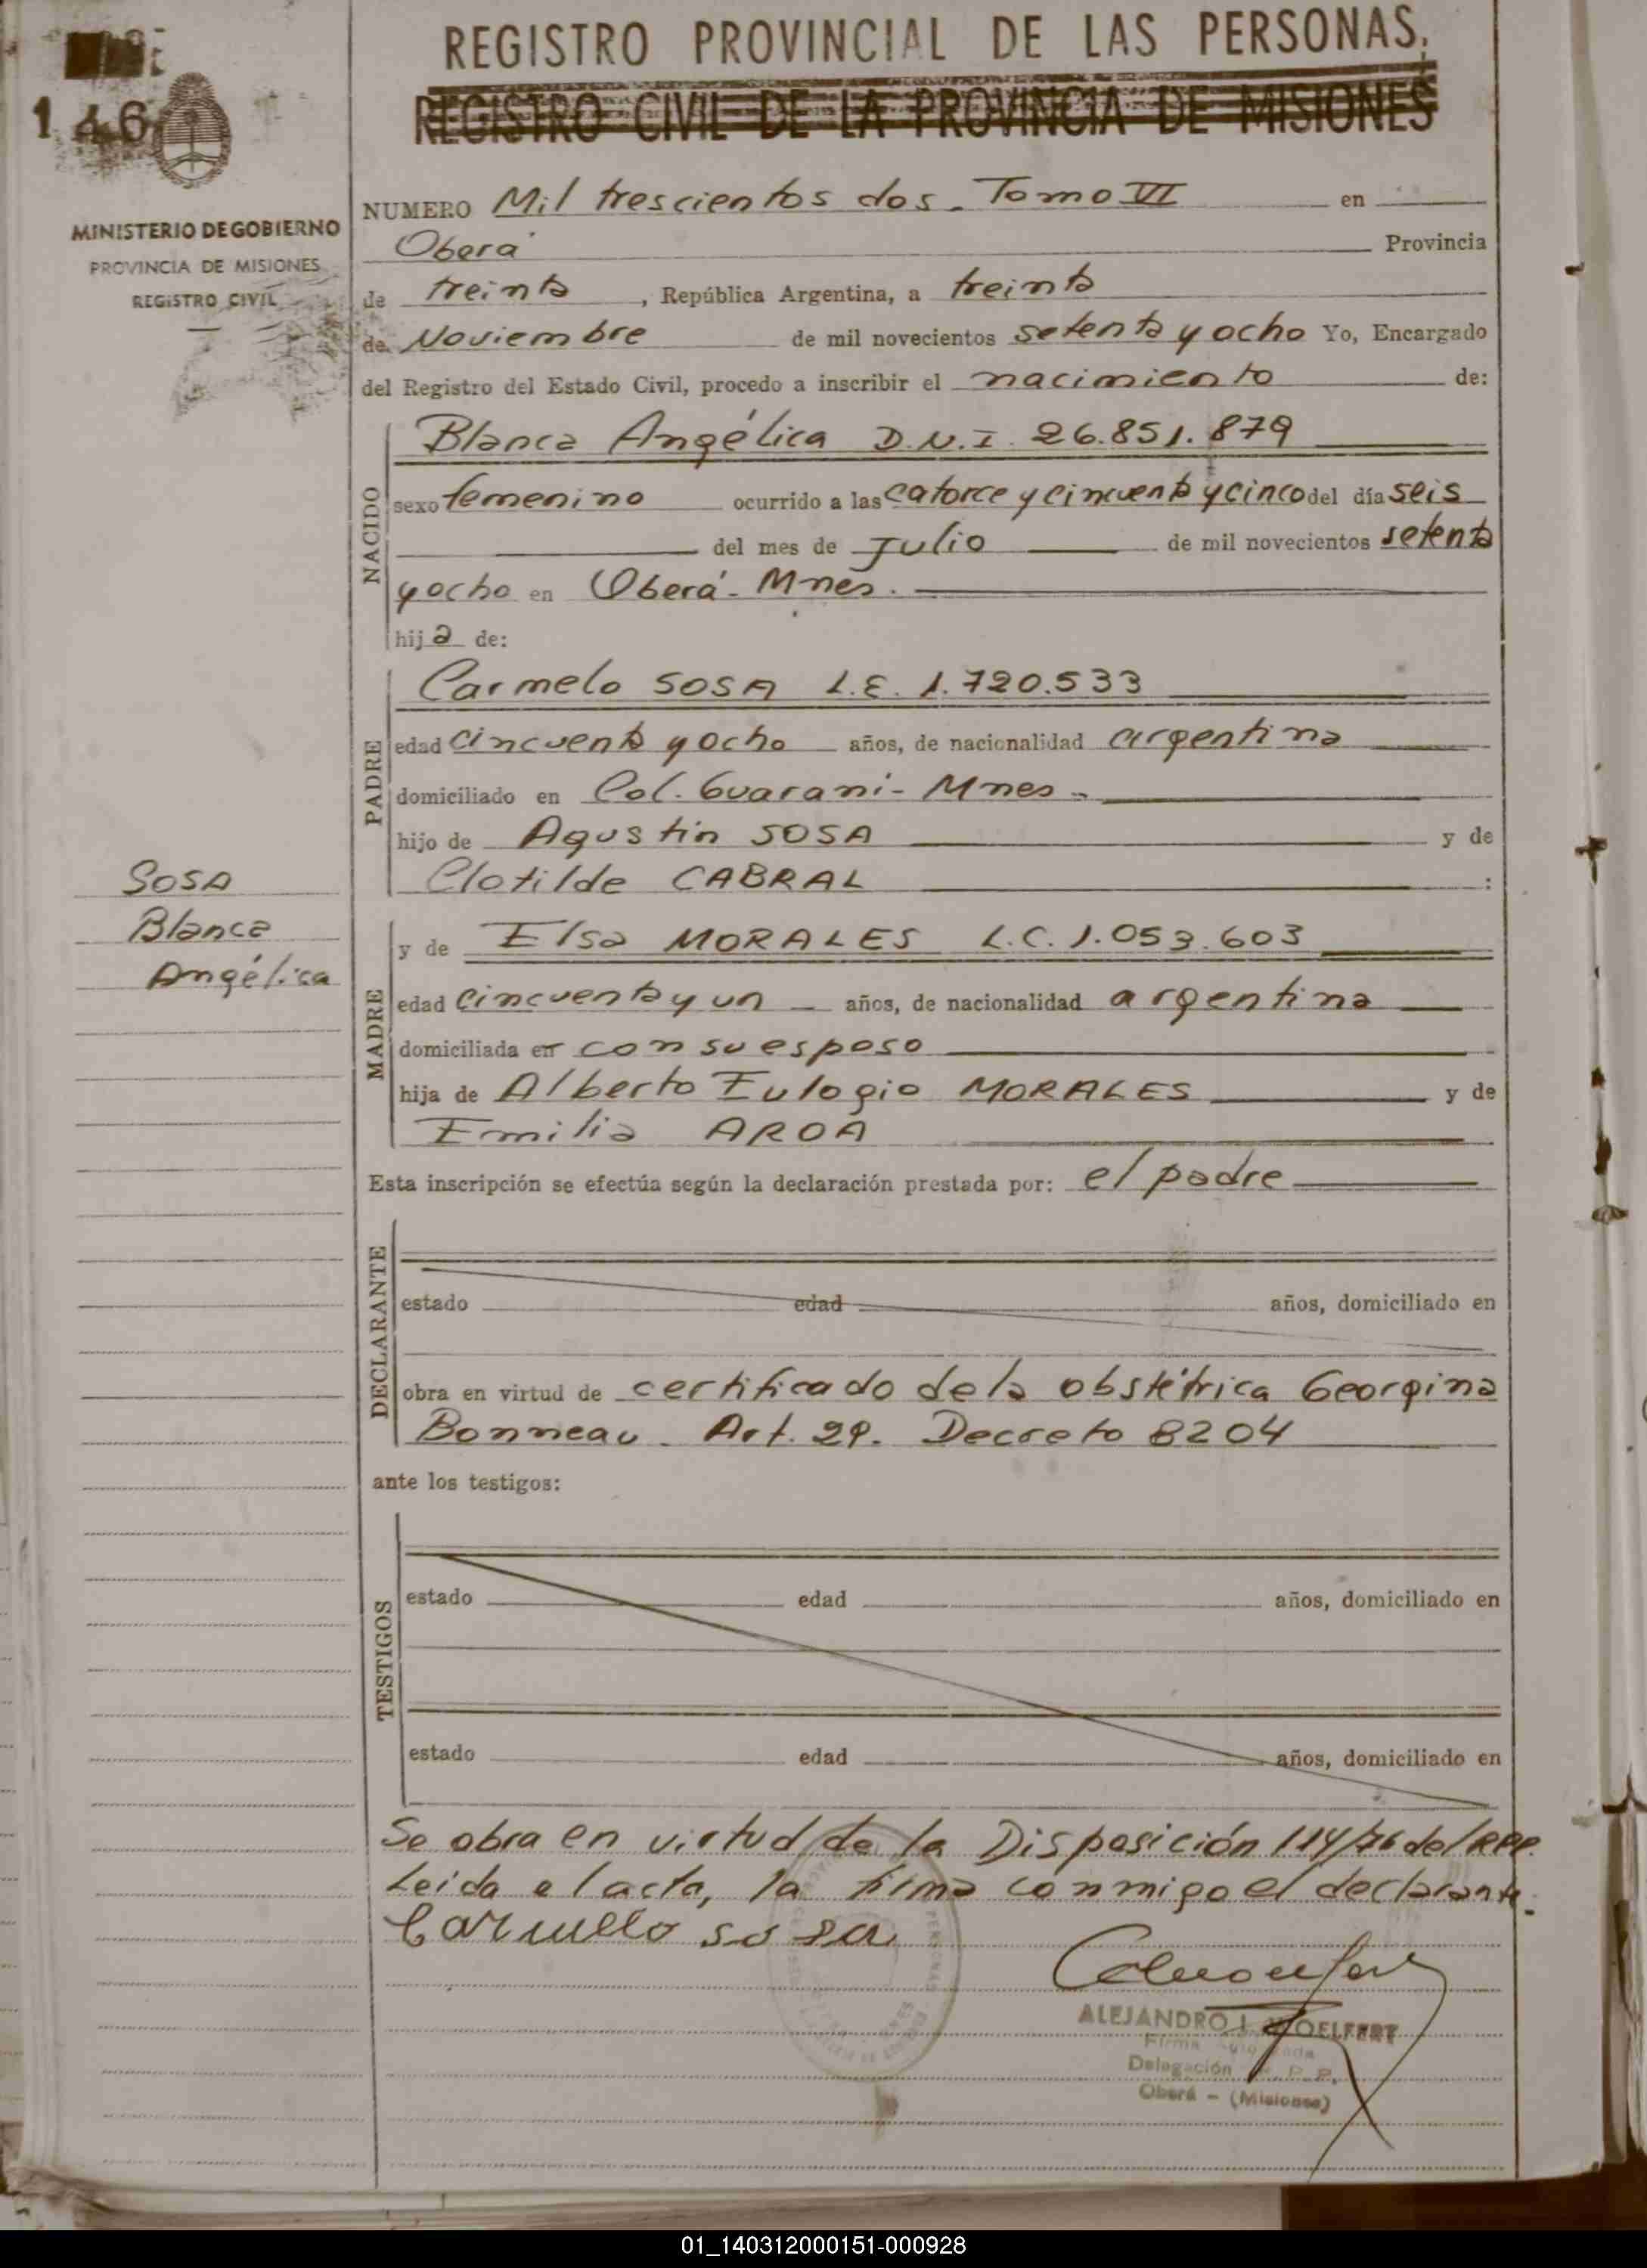 REGISTRO PROVINCIAL DE LAS PERSONAS.
REGISTRO CIVIL DE LA PROVINCIA DE MISIONES
146
MINISTERIO DE GOBIERNO
PROVINCIA DE MISIONES
REGISTRO CIVIL
NUMERO Mil trescientos dos. Tomo VI en
Oberá Provincia
de treinta , República Argentina, a treinta
de Noviembre de mil novecientos setenta y ocho Yo, Encargado
del Registro del Estado Civil, procedo a inscribir el nacimiento de:
NACIDO
Blanca Angélica D.N.I. 26.851.879
sexo femenino ocurrido a las catorce y cincuenta y cinco del día seis
del mes de Julio de mil novecientos setenta
y ocho en Oberá - Mnes.
hija de:
PADRE
Carmelo SOSA L.E. 1.720.533
edad cincuenta y ocho años, de nacionalidad argentina
domiciliado en Col. Guaraní - Mnes -
hijo de Agustin SOSA y de
Clotilde CABRAL :
SOSA
Blanca
Angélica
MADRE
y de Elsa MORALES L.C. 1.053.603
edad cincuenta y un años, de nacionalidad argentina
domiciliada en con su esposo
hija de Alberto Eulogio MORALES y de
Emilia AROA
Esta inscripción se efectúa según la declaración prestada por: el padre
DECLARANTE
estado edad años, domiciliado en
obra en virtud de certificado de la obstétrica Georgina
Bonneau. Art. 29. Decreto 8204
ante los testigos:
TESTIGOS
estado edad años, domiciliado en
estado edad años, domiciliado en
Se obra en virtud de la Disposición 114/76 del RPP.
Leida el acta, la firma conmigo el declarante.
Carmello sosa
ALEJANDRO
Firma
Delegación R. P. P.
Oberá - (Misiones)
01_140312000151-000928